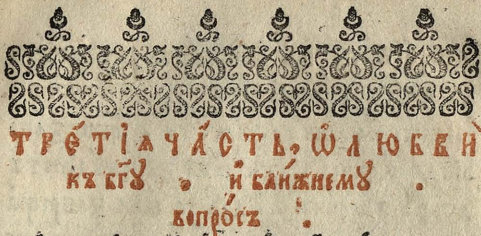 тре́тїѧ ча́сть, ѡ҆ любви̂
къ бг҃ꙋ . и҆ бли́жнемꙋ .
вопро́съ :